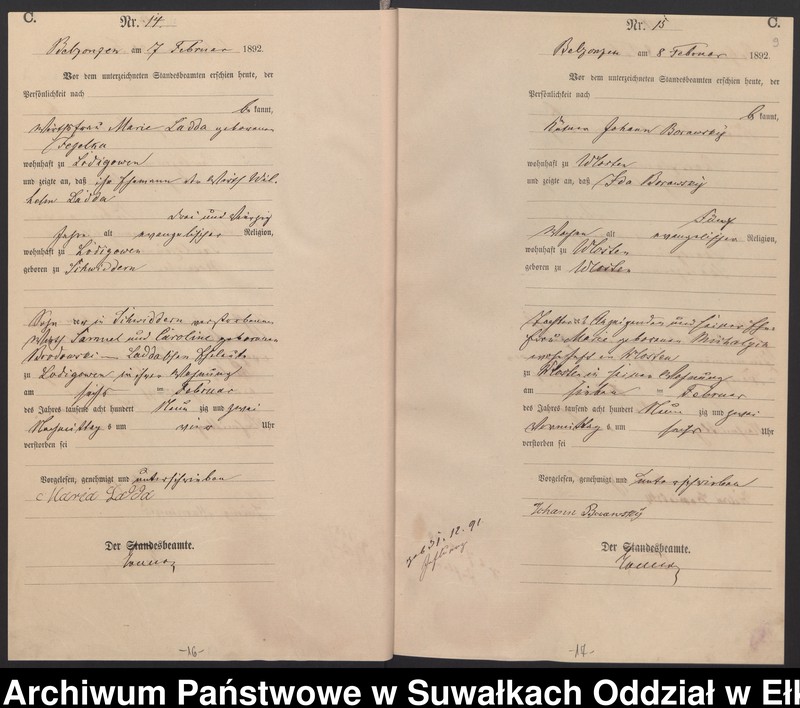 C.
Nr. 14.
Belzonzen am 7 Februar 1892.
Vor dem unterzeichneten Standesbeamten erschien heute, der
Persönlichkeit nach
be kannt,
Wirthsfrau Marie Ladda geborenen
wohnhaft zu Lodigowen
und zeigte an, daß ihr Ehemann der Wirth Wil-
helm Ladda
drei und vierzig
Jahre alt evangelischer Religion,
wohnhaft zu Lodigowen
geboren zu Schwiddern
Sohn der in Schwiddern verstorbenen
Wirth Samuel und Caroline geborenen
Brodowski - Ladda'schen Eheleute
zu Lodigowen in ihrer Wohnung
am sechs ten Februar
des Jahres tausend acht hundert Neun zig und zwei
Nachmittag s um vier Uhr
verstorben sei
Vorgelesen, genehmigt und unterschrieben
Maria Ladda
Der Standesbeamte.
-16-
Nr. 15
C.
9
Belzonzen am 8 Februar 1892
Vor dem unterzeichneten Standesbeamten erschien heute, der
Persönlichkeit nach
be kannt,
Johann Borawszy
wohnhaft zu Wlosten
und zeigte an, daß Ida Borawszy
Fünf
Wochen alt evangelischen Religion,
wohnhaft zu Wlosten
geboren zu Wlosten
Tochter des Anzeigenden und seiner Ehe-
frau Marie geborenen
wohnhaft in Wlosten
zu Wlosten in seiner Wohnung
am sieben ten Februar
des Jahres tausend acht hundert Neun zig und zwei
Vormittag s um sechs Uhr
verstorben sei
Vorgelesen, genehmigt und unterschrieben
Johann Borawszÿ
geb 31. 12. 91
Der Standesbeamte.
-17-
Archiwum Państwowe w Suwałkach Oddział w Ełk